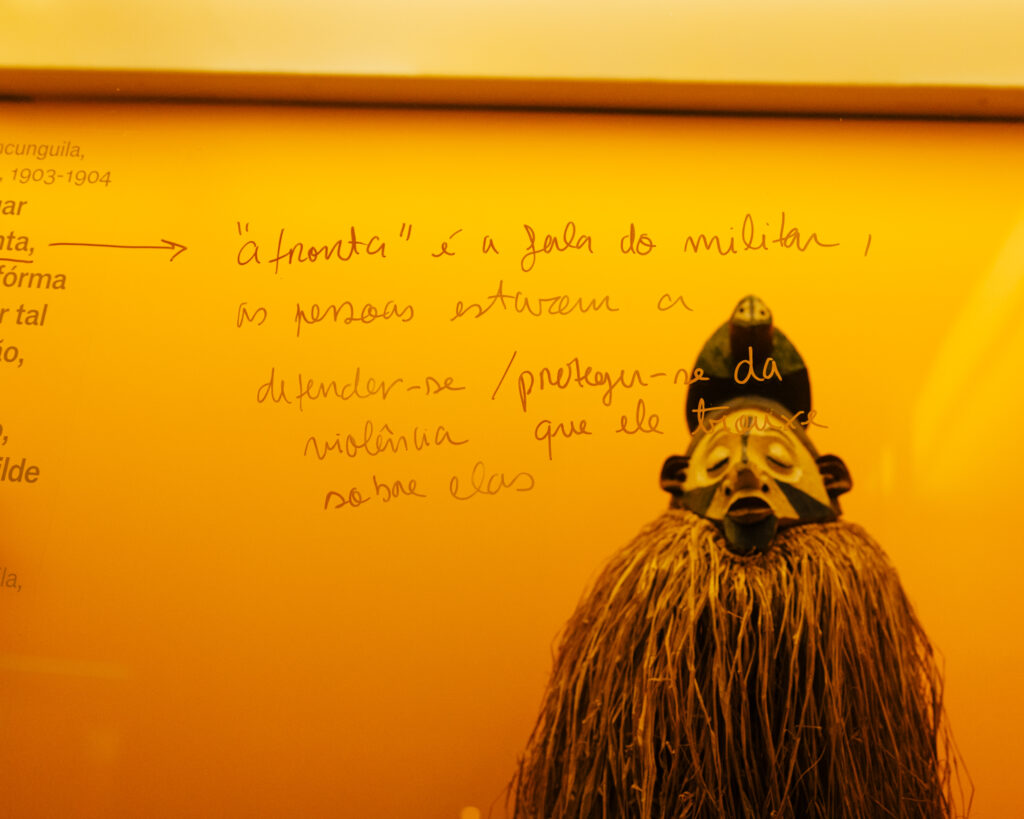 ncunguila,
, 1903-1904
uar
nta,
fórma
r tal
ão,
o,
ilde
ila,
"afronta" é a fala do militar,
as pessoas estavam a
defender-se /proteger-se da
violência que ele trouxe
sobre elas